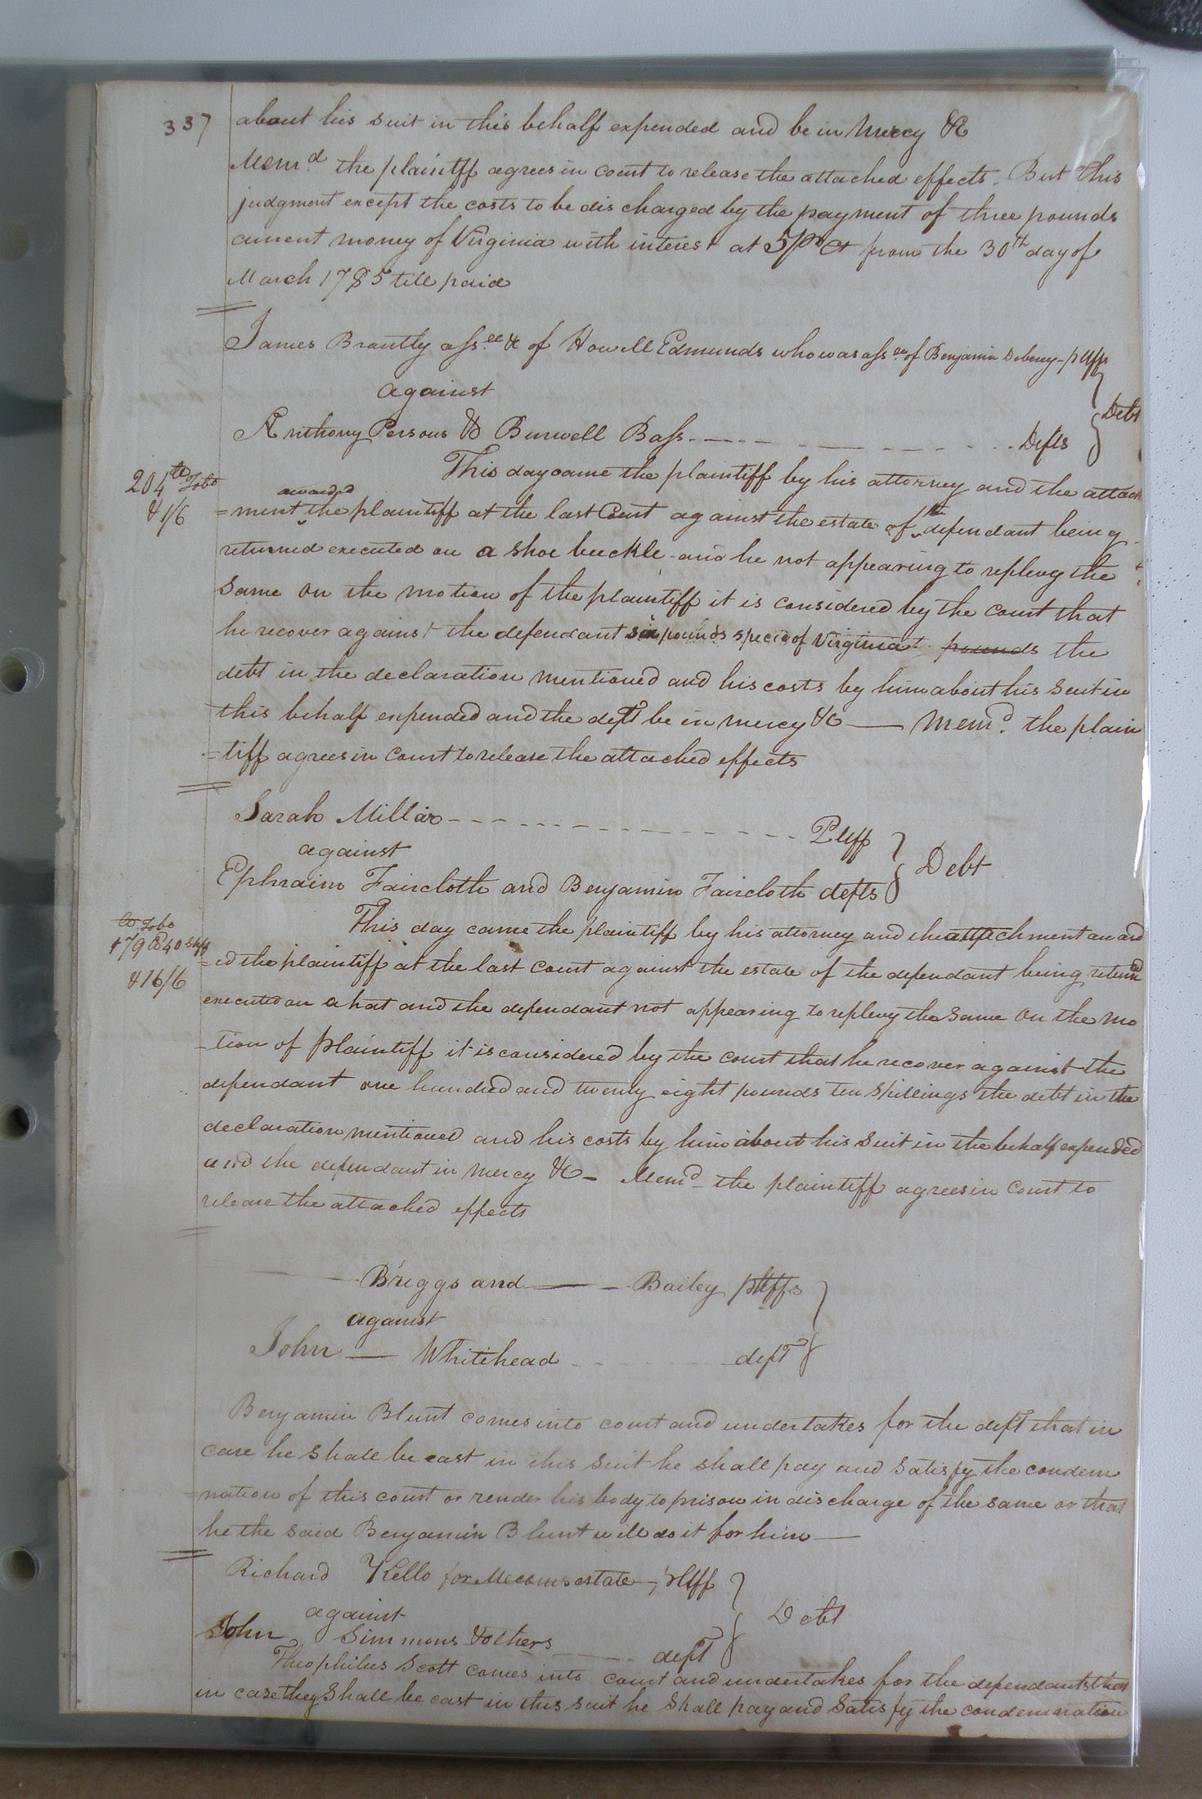 337
about his suit in this behalf expended and be in mercy &c
Memd the plaintiff agrees in court to release the attached effects. But this
judgment except the costs to be discharged by the payment of three pounds
current money of Virginia with interest at 5 pr Ct from the 30th day of
March 1785 till paid
James Brantly assee &c of Howell Edmunds who was assee of Benjamin Deberry - pltff
against
Debt
Anthony Persons & Burwell Bass - - - - - Defts
This day came the plaintiff by his attorney and the attach
204 lb Tobo
& 1/6
awarded
=ment the plaintiff at the last Court against the estate of the defendant being
returned executed on a shoe buckle and he not appearing to replevy the
same on the motion of the plaintiff it is considered by the court that
he recover against the defendant six pounds specie of Virginia pounds the
debt in the declaration mentioned and his costs by him about his suit in
this behalf expended and the deft be in mercy &c — Memd. the plain
=tiff agrees in court to release the attached effects
Sarah Millar - - - - - Pltff
against
Debt
Ephraim Faircloth and Benjamin Faircloth defts
This day came the plaintiff by his attorney and the attachment award
& 16/6
=ed the plaintiff at the last court against the estate of the defendant being returnd
executed on a hat and the defendant not appearing to replevy the same on the mo
=tion of plaintiff it is considered by the court that he recover against the
defendant one hundred and twenty eight pounds ten shillings the debt in the
declaration mentioned and his costs by him about his suit in the behalf expended
and the defendant in mercy &c - Memd - the plaintiff agrees in court to
release the attached effects
—— Briggs and —— Bailey pltffs
against
John — Whitehead - - - - deft
Benjamin Blunt comes into court and undertakes for the deft that in
case he shall be cast in this suit he shall pay and satisfy the condem
nation of this court or render his body to prison in discharge of the same or that
he the said Benjamin Blunt will do it for him —
Richard Kello for Mecoms estate - pltff
against
Debt
John Simmons & others - - - - deft
Theophilus Scott comes into court and undertakes for the defendants that
in case they shall be cast in this suit he shall pay and satisfy the condemnation